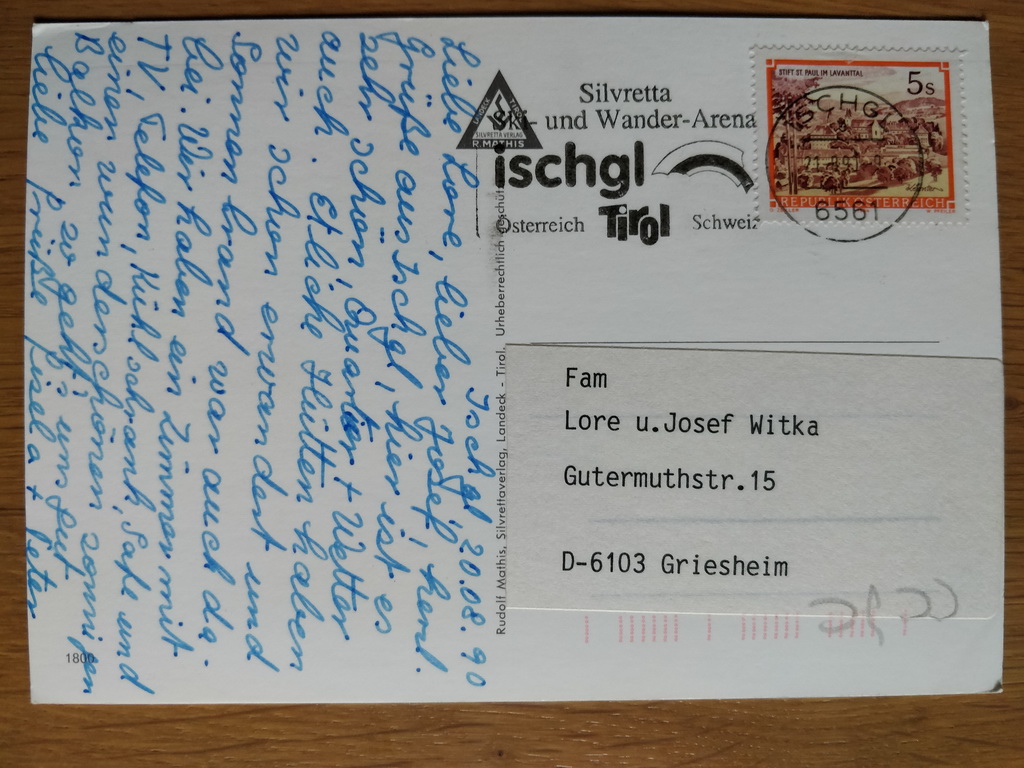 Ischgl 20.08.90
Liebe Lore, lieber Josef, herzl.
Grüße aus Ischgl, hier ist es
sehr schön, Quartier + Wetter
auch. Etliche Hütten haben
wir schon erwandert und
Sonnenbrand war auch da-
bei. Wir haben ein Zimmer mit
TV, Telefon, Kühlschrank, Safe und
einen wunderschönen sonnigen
Balkon so geht's uns gut
Liebe Grüße Gisela + Peter
1800
Rudolf Mathis, Silvrettaverlag, Landeck - Tirol, Urheberrechtlich geschützt
SILVRETTA VERLAG
R. MATHIS
Silvretta
Ski- und Wander-Arena
ischgl
Österreich Tirol Schweiz
STIFT ST. PAUL IM LAVANTTAL
5s
REPUBLIK ÖSTERREICH
ISCHGL
6561
Fam
Lore u.Josef Witka
Gutermuthstr.15
D-6103 Griesheim